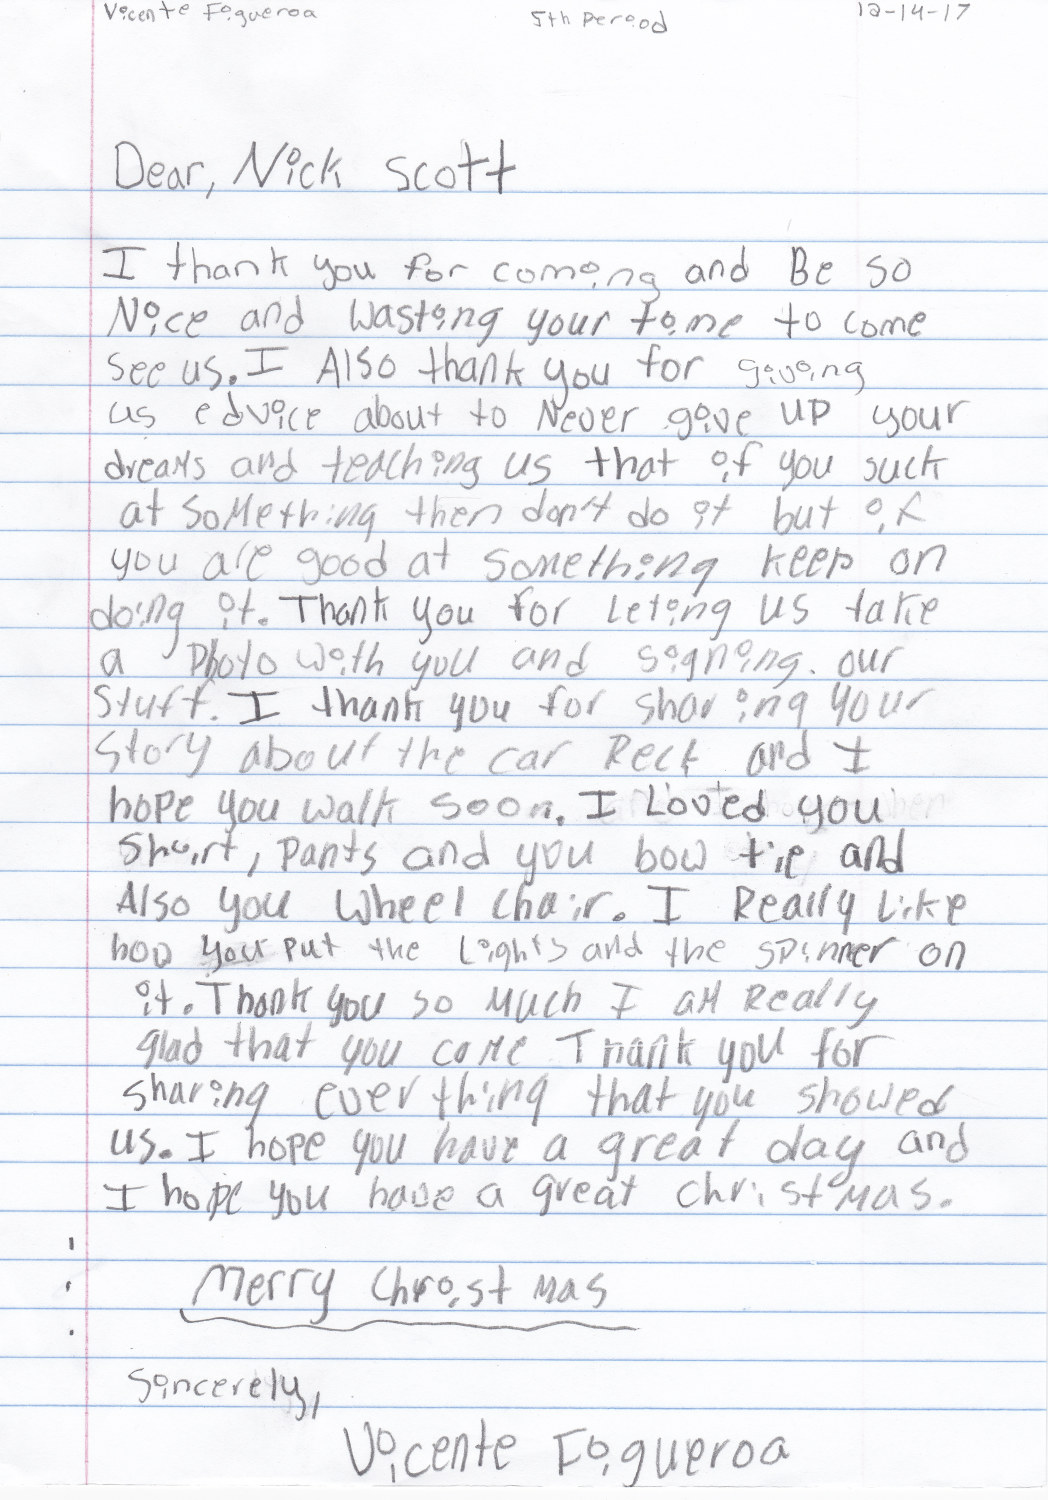 Vicente Figueroa 5th Period 12-14-17
Dear, Nick Scott
I thank you for coming and Be so
Nice and wasting your time to come
see us. I Also thank you for giving
us edvice about to Never give up your
dreams and teaching us that if you suck
at something then don't do it but if
you are good at something keep on
doing it. Thank you for Leting us take
a Photo with you and signing. our
stuff. I thank you for sharing your
story about the car Reck and I
hope you walk soon. I Loved you
Shuirt, pants and you bow tie and
Also you wheel chair. I Really Like
how your put the Lights and the spinner on
it. Thank you so much I am Really
glad that you come Thank you for
sharing everthing that you showed
us. I hope you have a great day and
I hope you have a great christmas.
Merry Christmas
Sincerely,
Vicente Figueroa